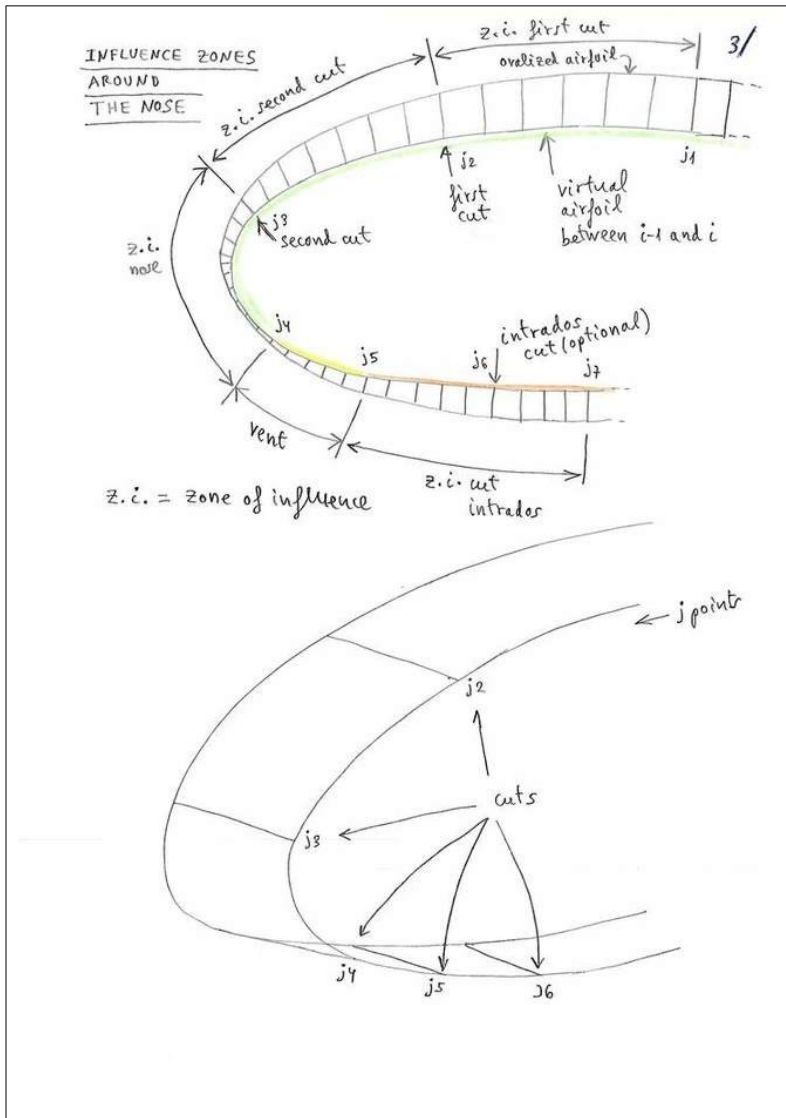 INFLUENCE ZONES
AROUND
THE NOSE
3/
z.i. first cut
ovalized airfoil
z.i. second cut
j2
first
cut
virtual
airfoil
between i-1 and i
j1
j3
second cut
z.i.
nose
j4
j5
intrados
cut (optional)
j6
j7
vent
z.i. cut
intrados
z.i. = zone of influence
j points
j2
cuts
j3
j4
j5
j6